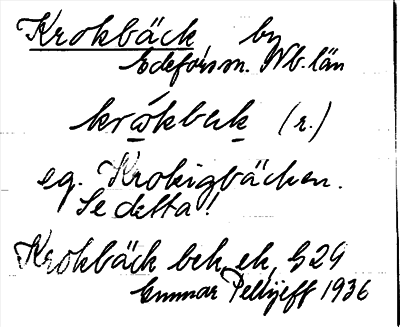 Krokbäck by
Edefors sn. Nb. län
kråkbak (r.)
eg. Krokigbäcken.
Se detta!
Krokbäck bek. ek. 529
Gunnar Pellijeff 1936